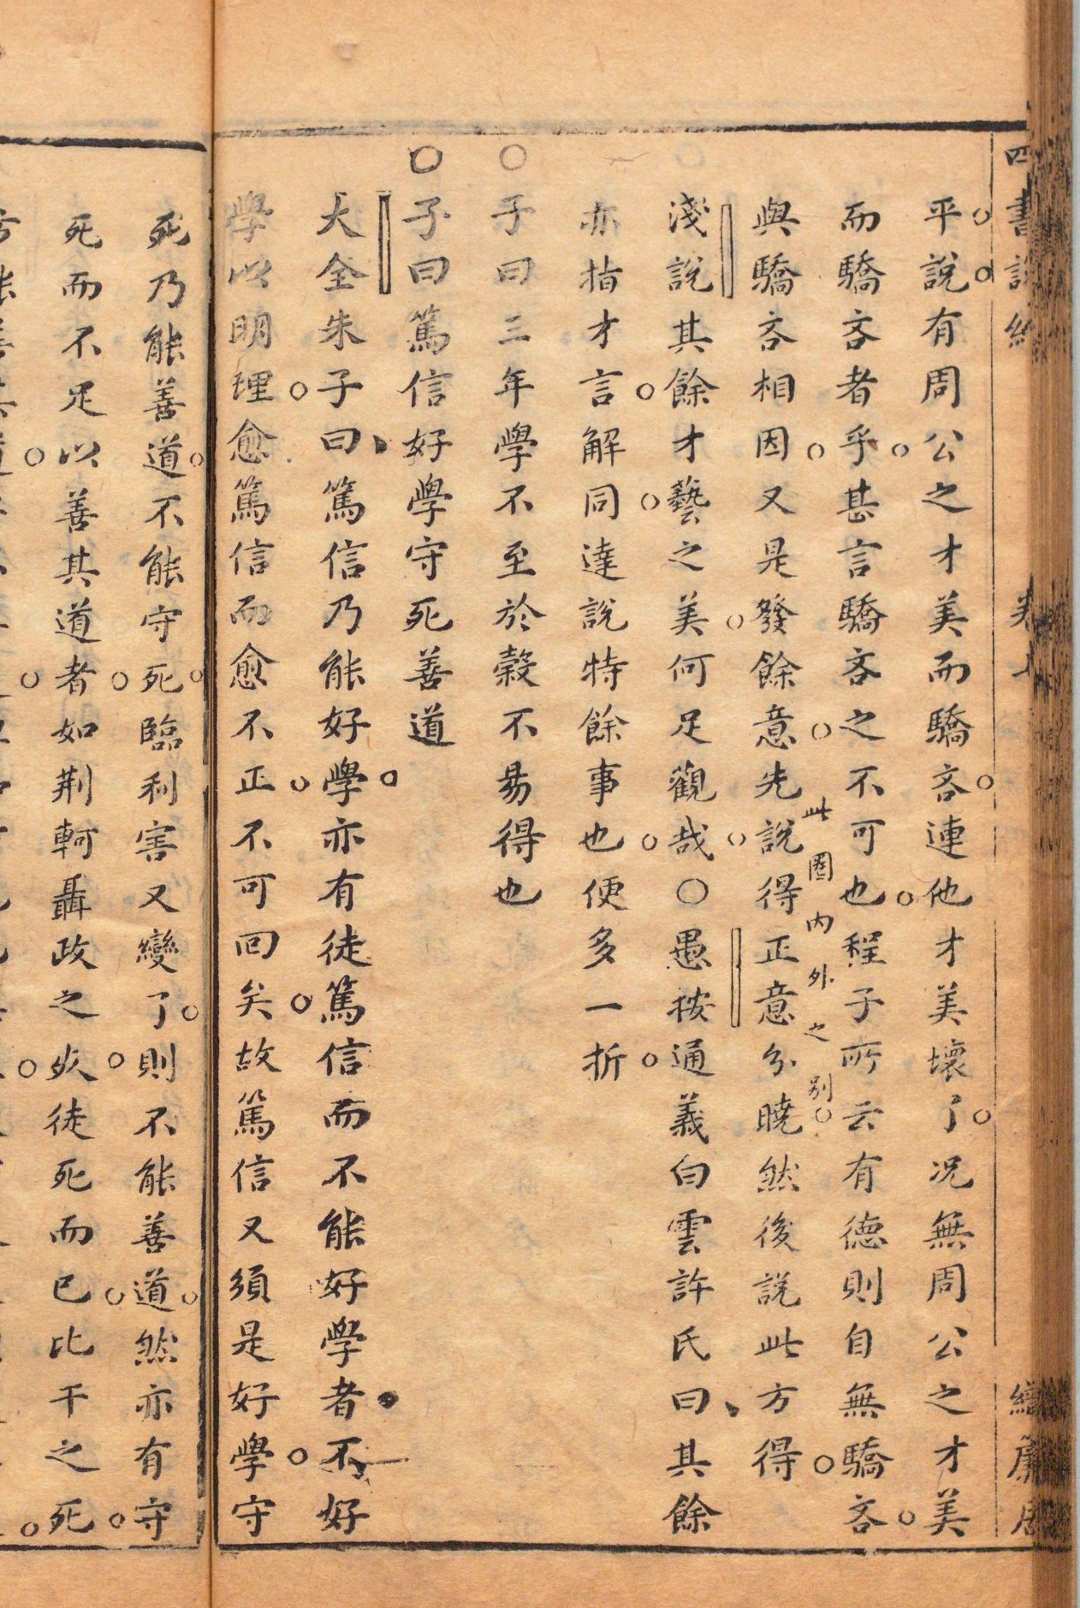 四書說約
平說有周公之才美而驕吝連他才美壞了况無周公之才美
而驕吝者乎甚言驕吝之不可也程子所云有德則自無驕吝
此圏内外之别
與驕吝相因又是發餘意先說得正意分曉然後說此方得
淺說其餘才藝之美何足觀哉○愚按通義白雲許氏曰其餘
亦指才言解同達說特餘事也便多一折
○子曰三年學不至於穀不易得也
○子曰篤信好學守死善道
大全朱子曰篤信乃能好學亦有徒篤信而不能好學者不好
學以明理愈篤信而愈不正不可回矣故篤信又須是好學守
死乃能善道不能守死臨利害又變了則不能善道然亦有守
死而不足以善其道者如荆軻聶政之死徒死而已比干之死